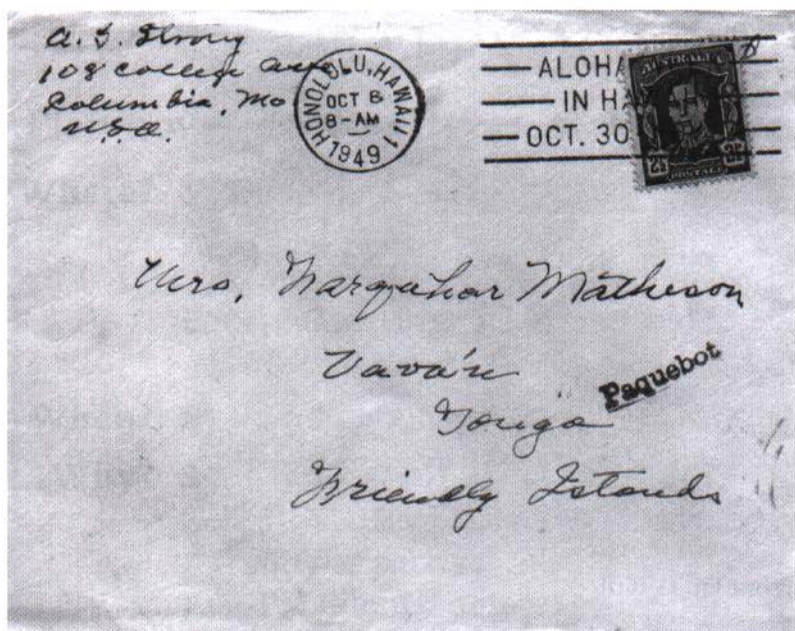 A. S. Strong
108 College Ave
Columbia, Mo
U.S.A.
HONOLULU, HAWAII
OCT 8
8-AM
1949
1
ALOHA
IN HA
OCT. 30
AUSTRALIA
2½
POSTAGE
Mrs. Farquhar Matheson
Vava'u
Tonga
Paquebot
Friendly Islands